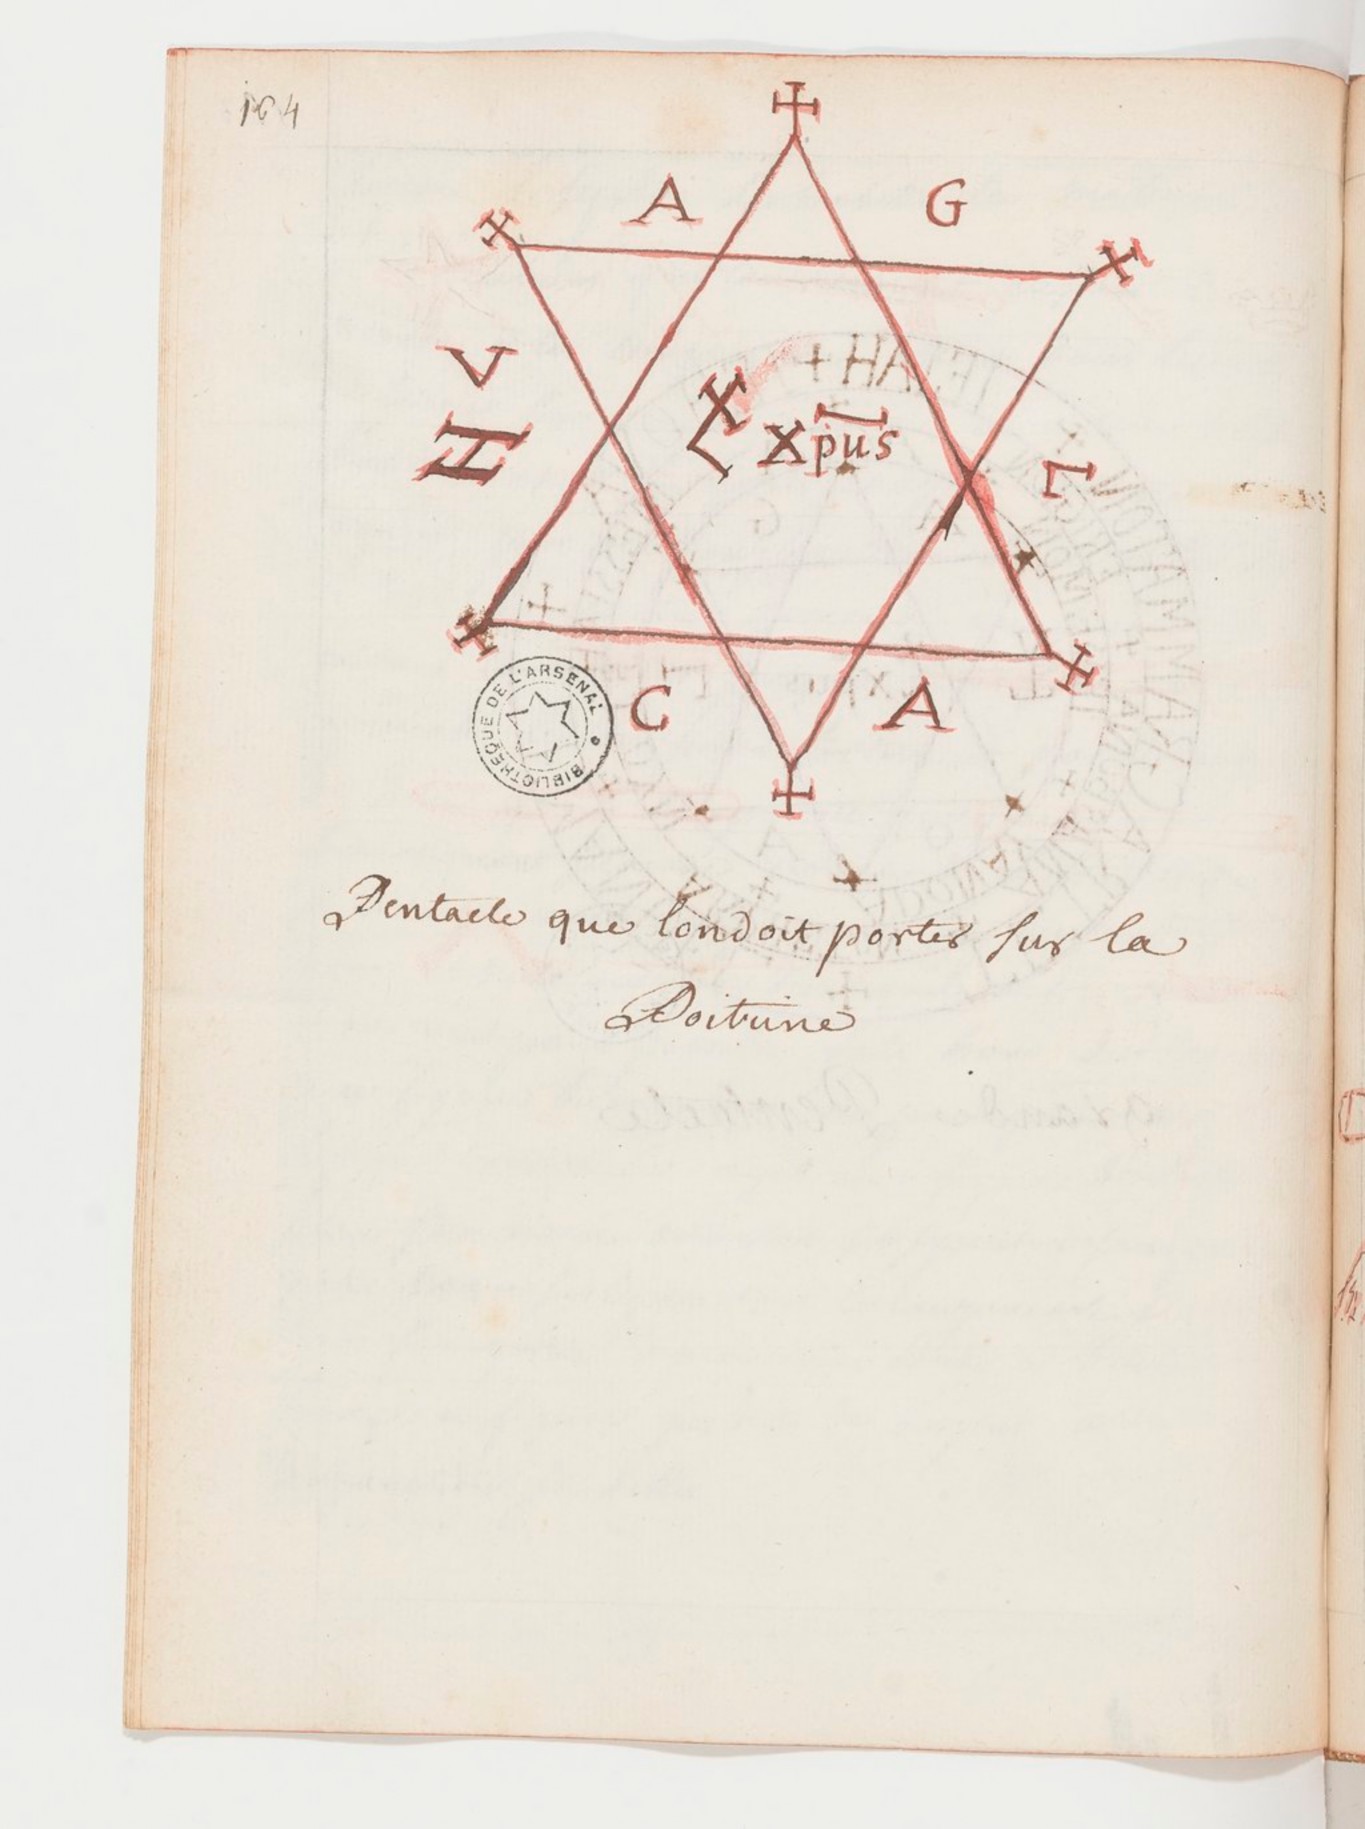 164
A G
V
H
L
L Xpus
C A
BIBLIOTHEQUE DE L'ARSENAL
Pentacle que londoit porter sur la
Poitrine